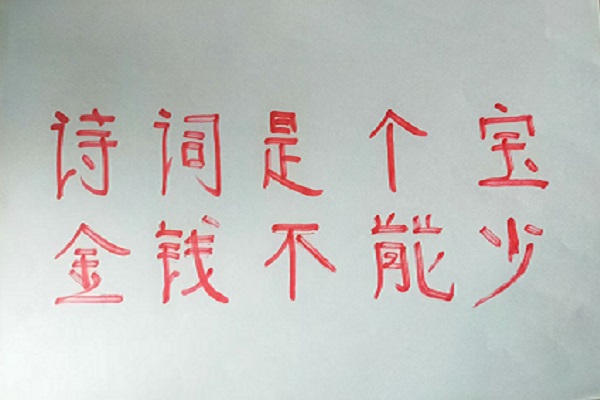 诗词是个宝
金钱不能少